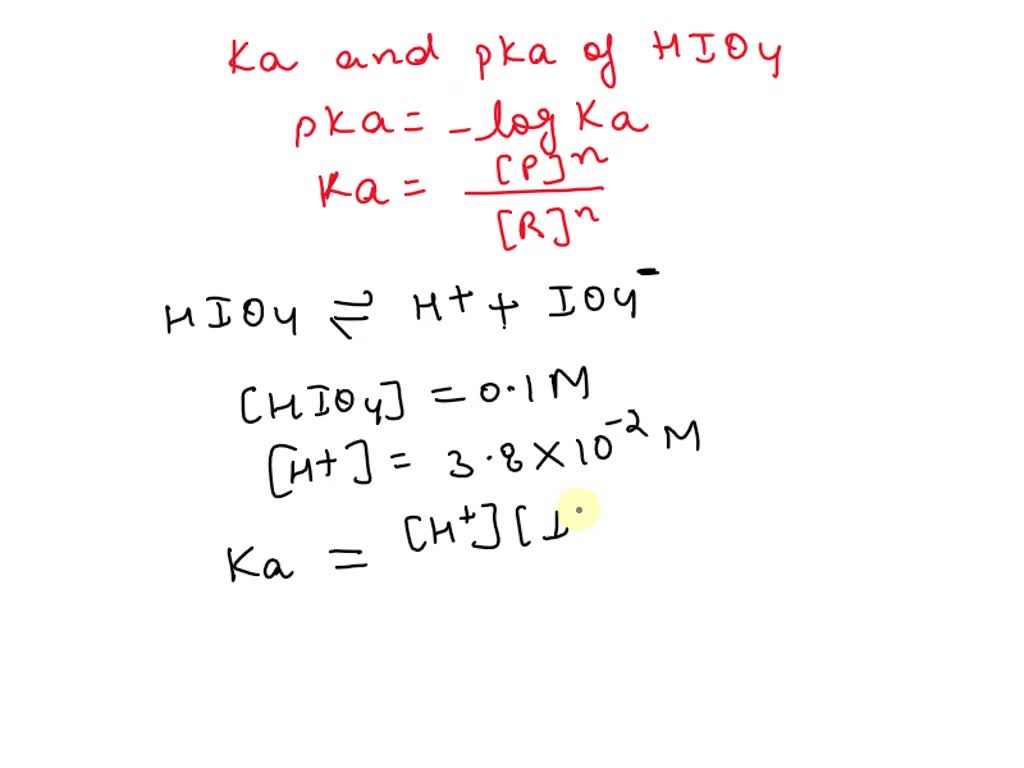 Ka and pKa of HIO4
pKa = -log Ka
Ka = [P]^n / [R]^n
HIO4 ⇌ H+ + IO4^-
[HIO4] = 0.1 M
[H+] = 3.8 × 10^-2 M
Ka = [H+] [I